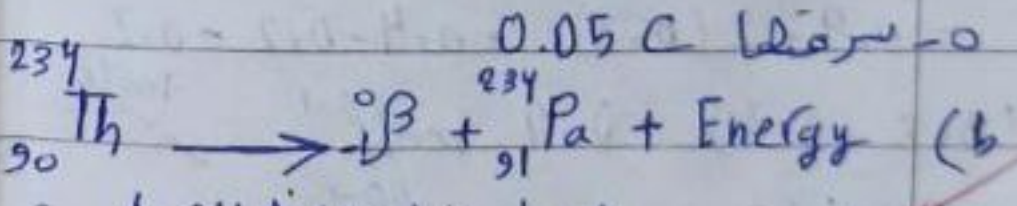 ٥- سرعتها 0.05 C
b) ²³⁴₉₀Th ⟶ ⁰₋₁β + ²³⁴₉₁Pa + Energy